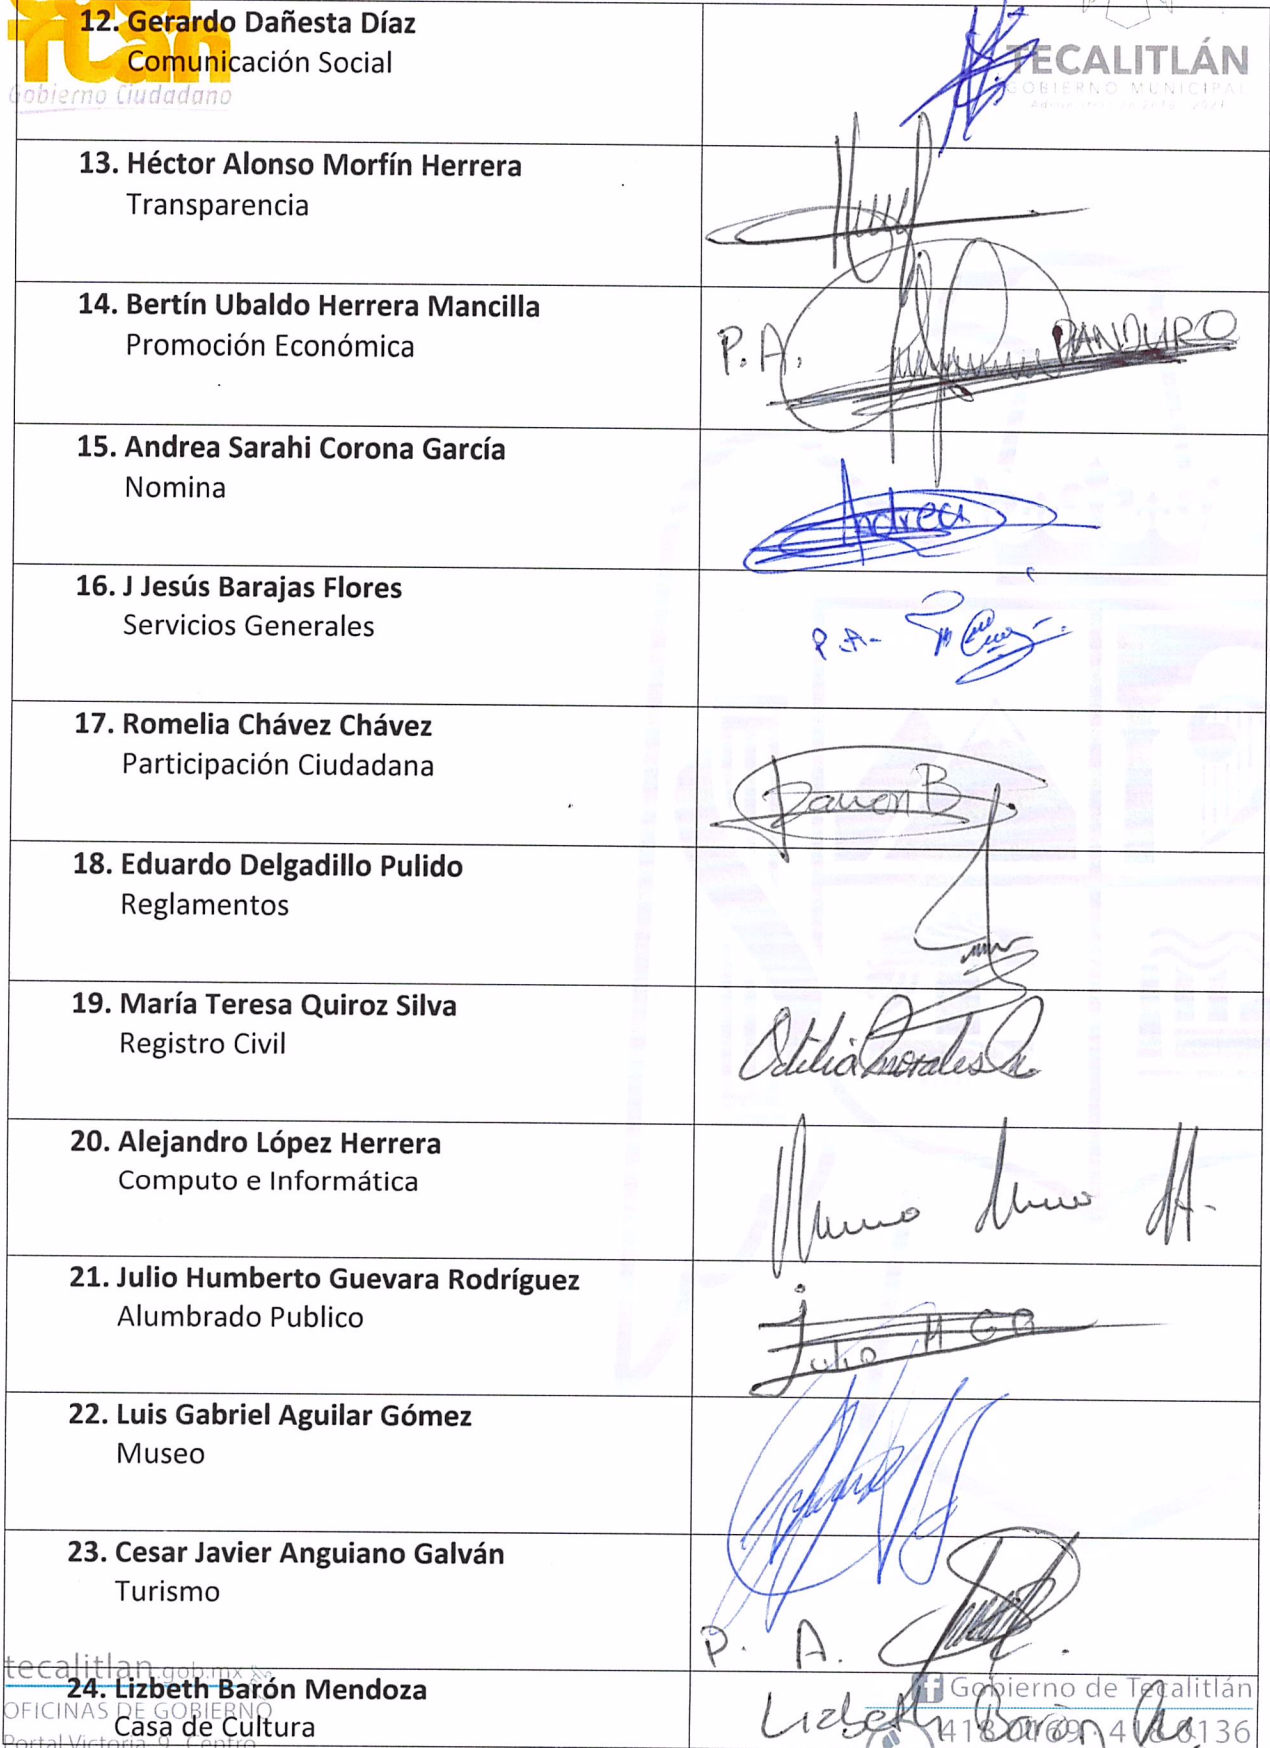 12. Gerardo Dañesta Díaz
Comunicación Social
Gobierno Ciudadano
TECALITLÁN
GOBIERNO MUNICIPAL
13. Héctor Alonso Morfín Herrera
Transparencia
14. Bertín Ubaldo Herrera Mancilla
Promoción Económica
P. A. PANDURO
15. Andrea Sarahi Corona García
Nomina
Andrea
16. J Jesús Barajas Flores
Servicios Generales
P.A-
17. Romelia Chávez Chávez
Participación Ciudadana
18. Eduardo Delgadillo Pulido
Reglamentos
19. María Teresa Quiroz Silva
Registro Civil
Odilia Morales
20. Alejandro López Herrera
Computo e Informática
21. Julio Humberto Guevara Rodríguez
Alumbrado Publico
Julio H G R
22. Luis Gabriel Aguilar Gómez
Museo
23. Cesar Javier Anguiano Galván
Turismo
P. A.
tecalitlan.gob.mx
24. Lizbeth Barón Mendoza
Casa de Cultura
Lizbeth Barón
OFICINAS DE GOBIERNO
Portal Victoria 9 Centro
Gobierno de Tecalitlán